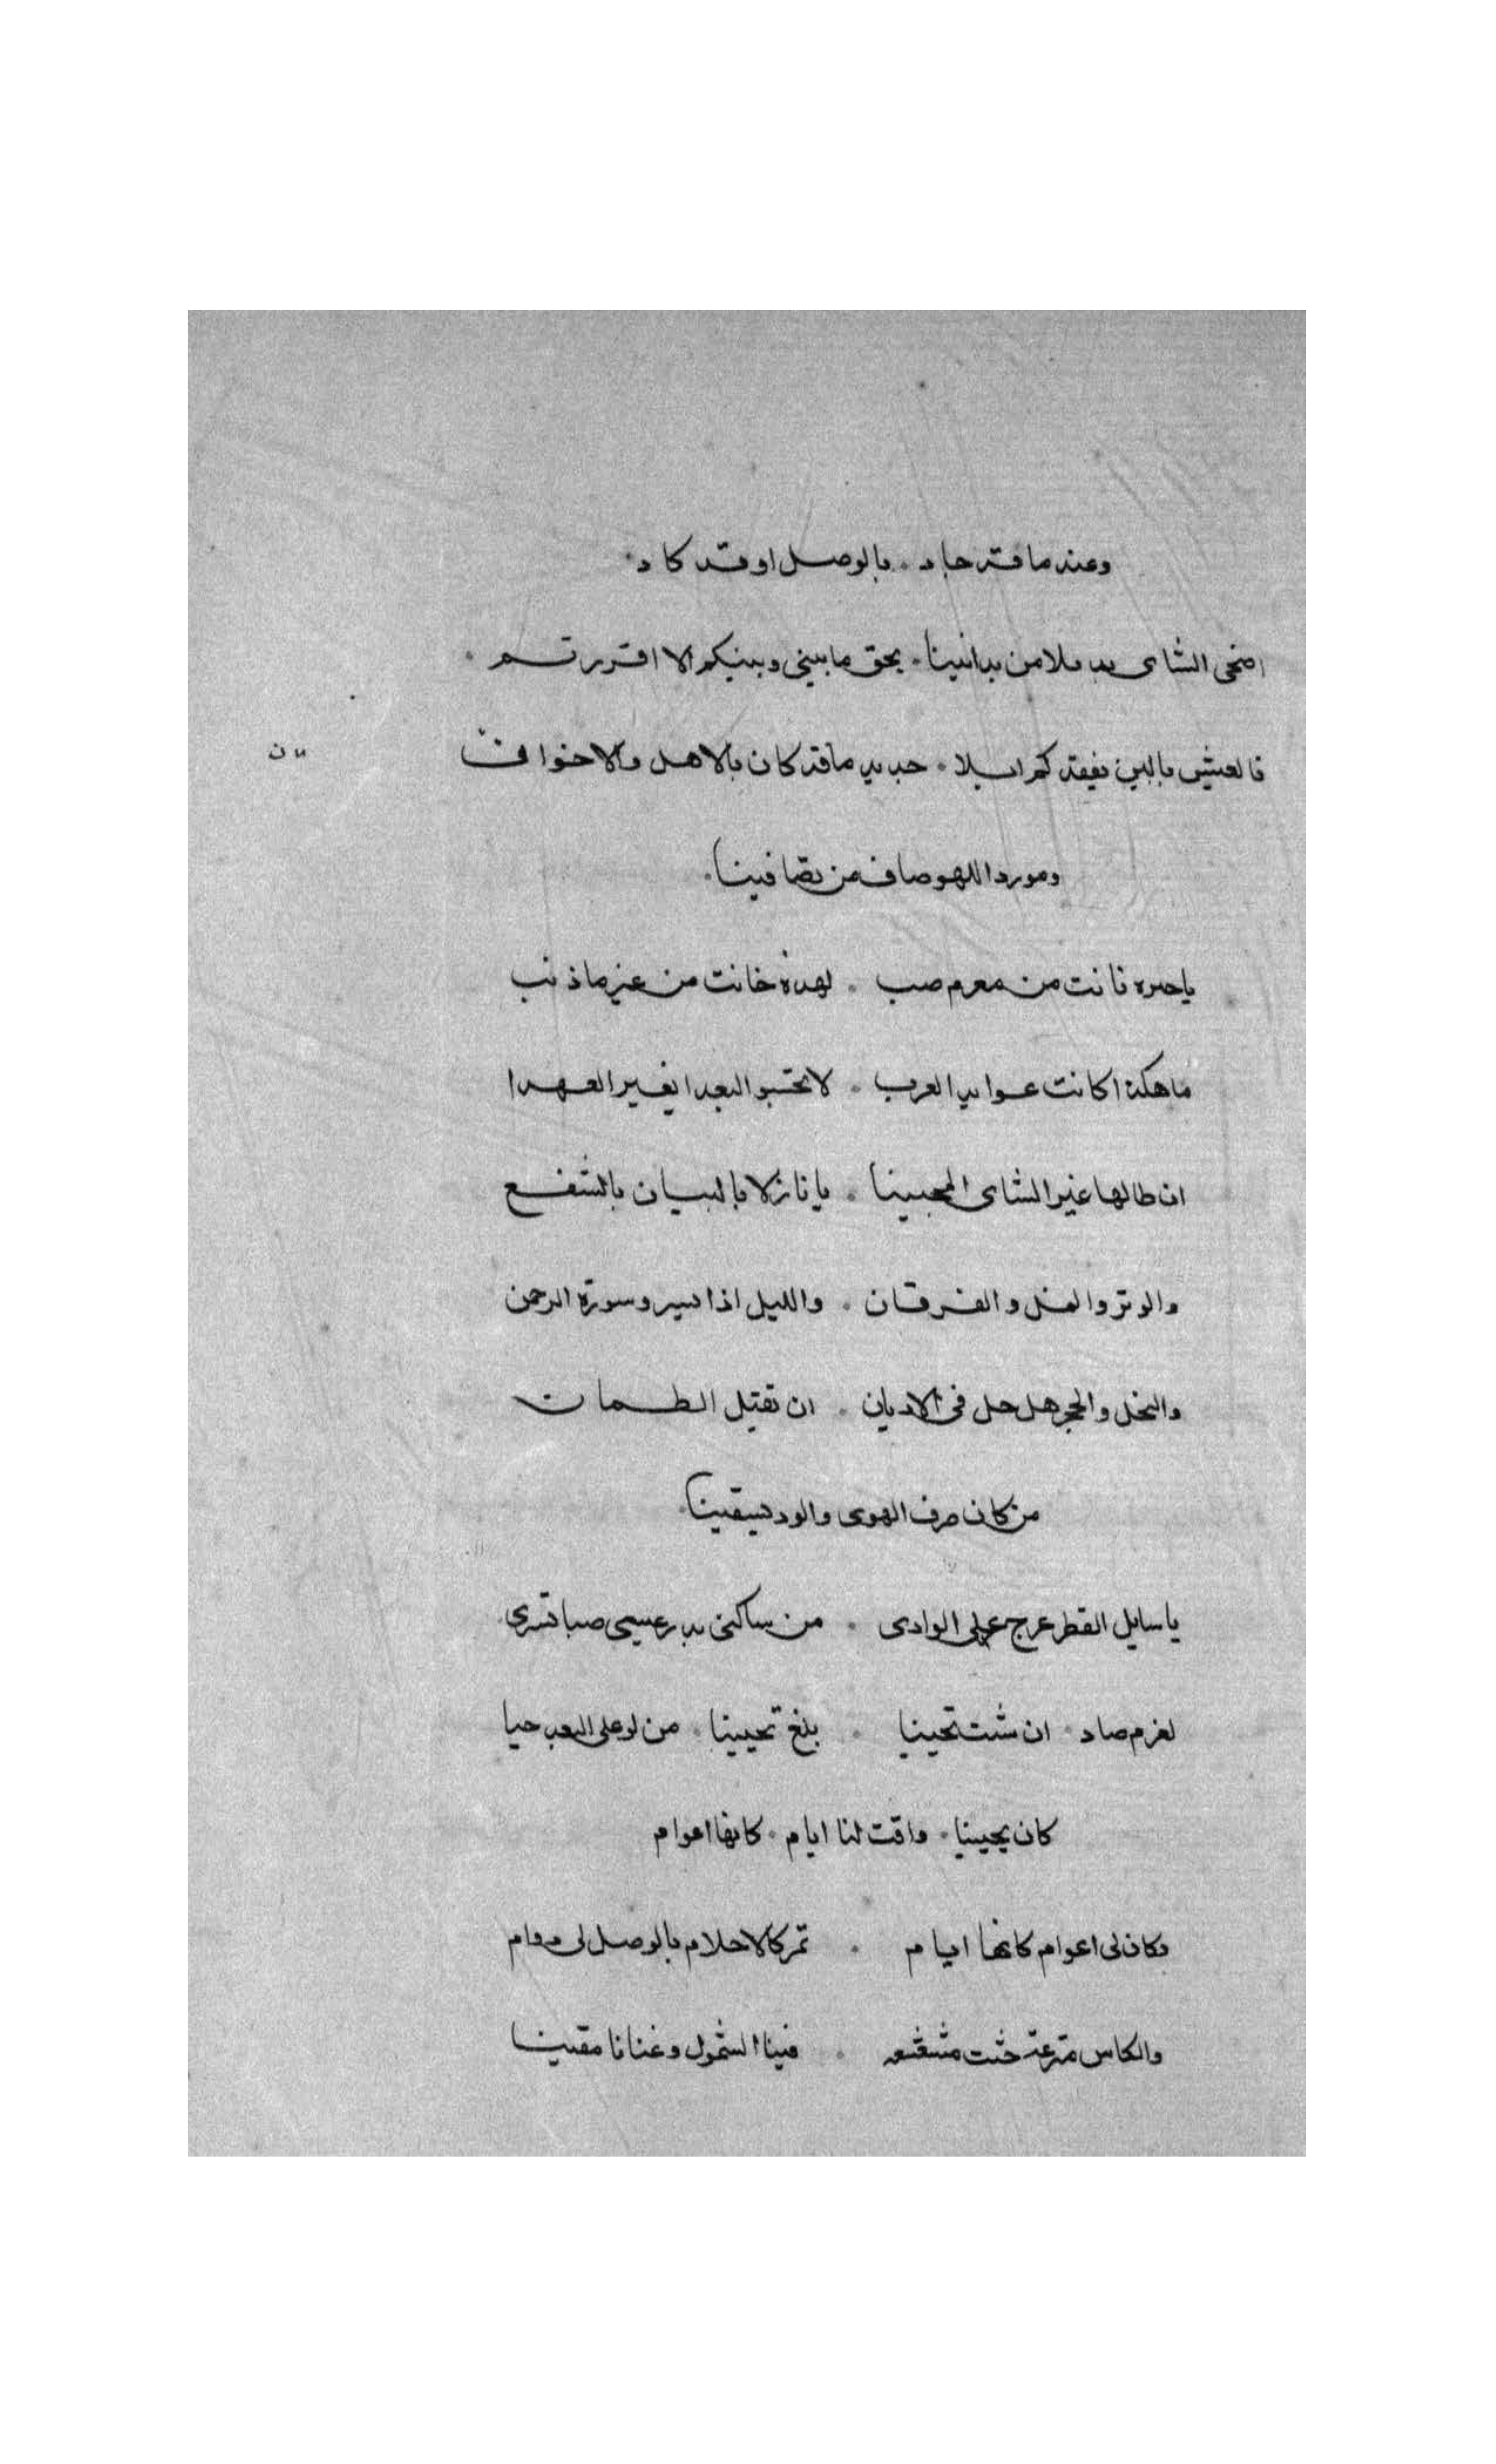 وعند ما قد جاد . بالوصل او قد كاد .
اضحى التناى بديلا من تدانينا . بحق ما بينى وبينكم الا اقررتم .
فالعيش بالبين بفقدكم ابلا . جديد ما قد كان بالاهل والاخوان
ومورد اللهو صاف من تصافينا .
يا جيرة بانت من مغرم صب . لعهده خانت من غير ما ذنب
ما هكذا كانت عوايد العرب . لا تحسبوا البعدا يغير العهدا
ان طالما غير التناى المحبينا . يا نازلا بالبان بالشفع
والوتر والنمل والفرقان . والليل اذا يسر وسورة الرحمن
والنحل والحجر هل حل فى الاديان . ان تقتل الظمان
من كان صرف الهوى والود يسقينا .
يا سايل القطر عرج على الوادى . من ساكنى بدر عيسى صبا تسرى
لمغرم صاد . ان شئت تحيينا . بلغ تحيينا . من لو على البعد حيا
كان يحيينا . وافت لنا ايام . كانها اعوام
وكان لى اعوام كانها ايام . تمر كالاحلام بالوصل لى
والكاس مترعة حثت مشعشعه . فينا الشمول وغنانا مغنينا